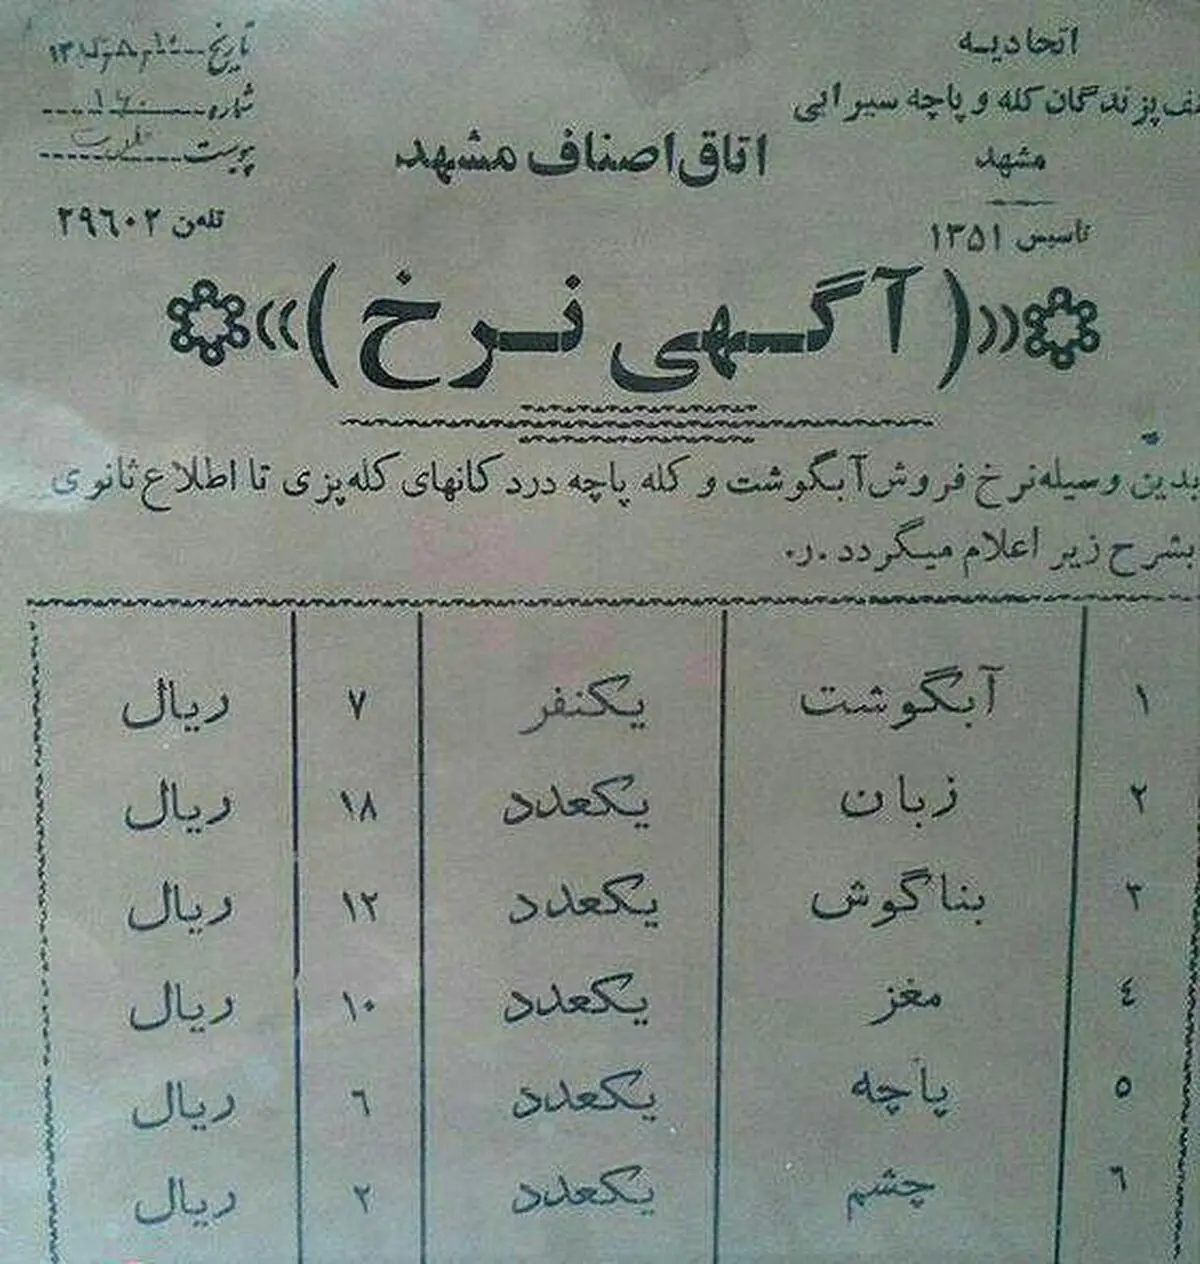 اتحادیه
پزندگان کله و پاچه سیرابی
مشهد
تاسیس ۱۳۵۱
اتاق اصناف مشهد
تاریخ
شماره ۱۶۰
پیوست
تلفن ۲۹۶۰۲
«(آگهی نرخ)»
بدین وسیله نرخ فروش آبگوشت و کله پاچه در دکانهای کله‌پزی تا اطلاع ثانوی
بشرح زیر اعلام میگردد .ر.
۱ آبگوشت یکنفر ۷ ریال
۲ زبان یکعدد ۱۸ ریال
۳ بناگوش یکعدد ۱۲ ریال
٤ مغز یکعدد ۱۰ ریال
۵ پاچه یکعدد ٦ ریال
٦ چشم یکعدد ۲ ریال